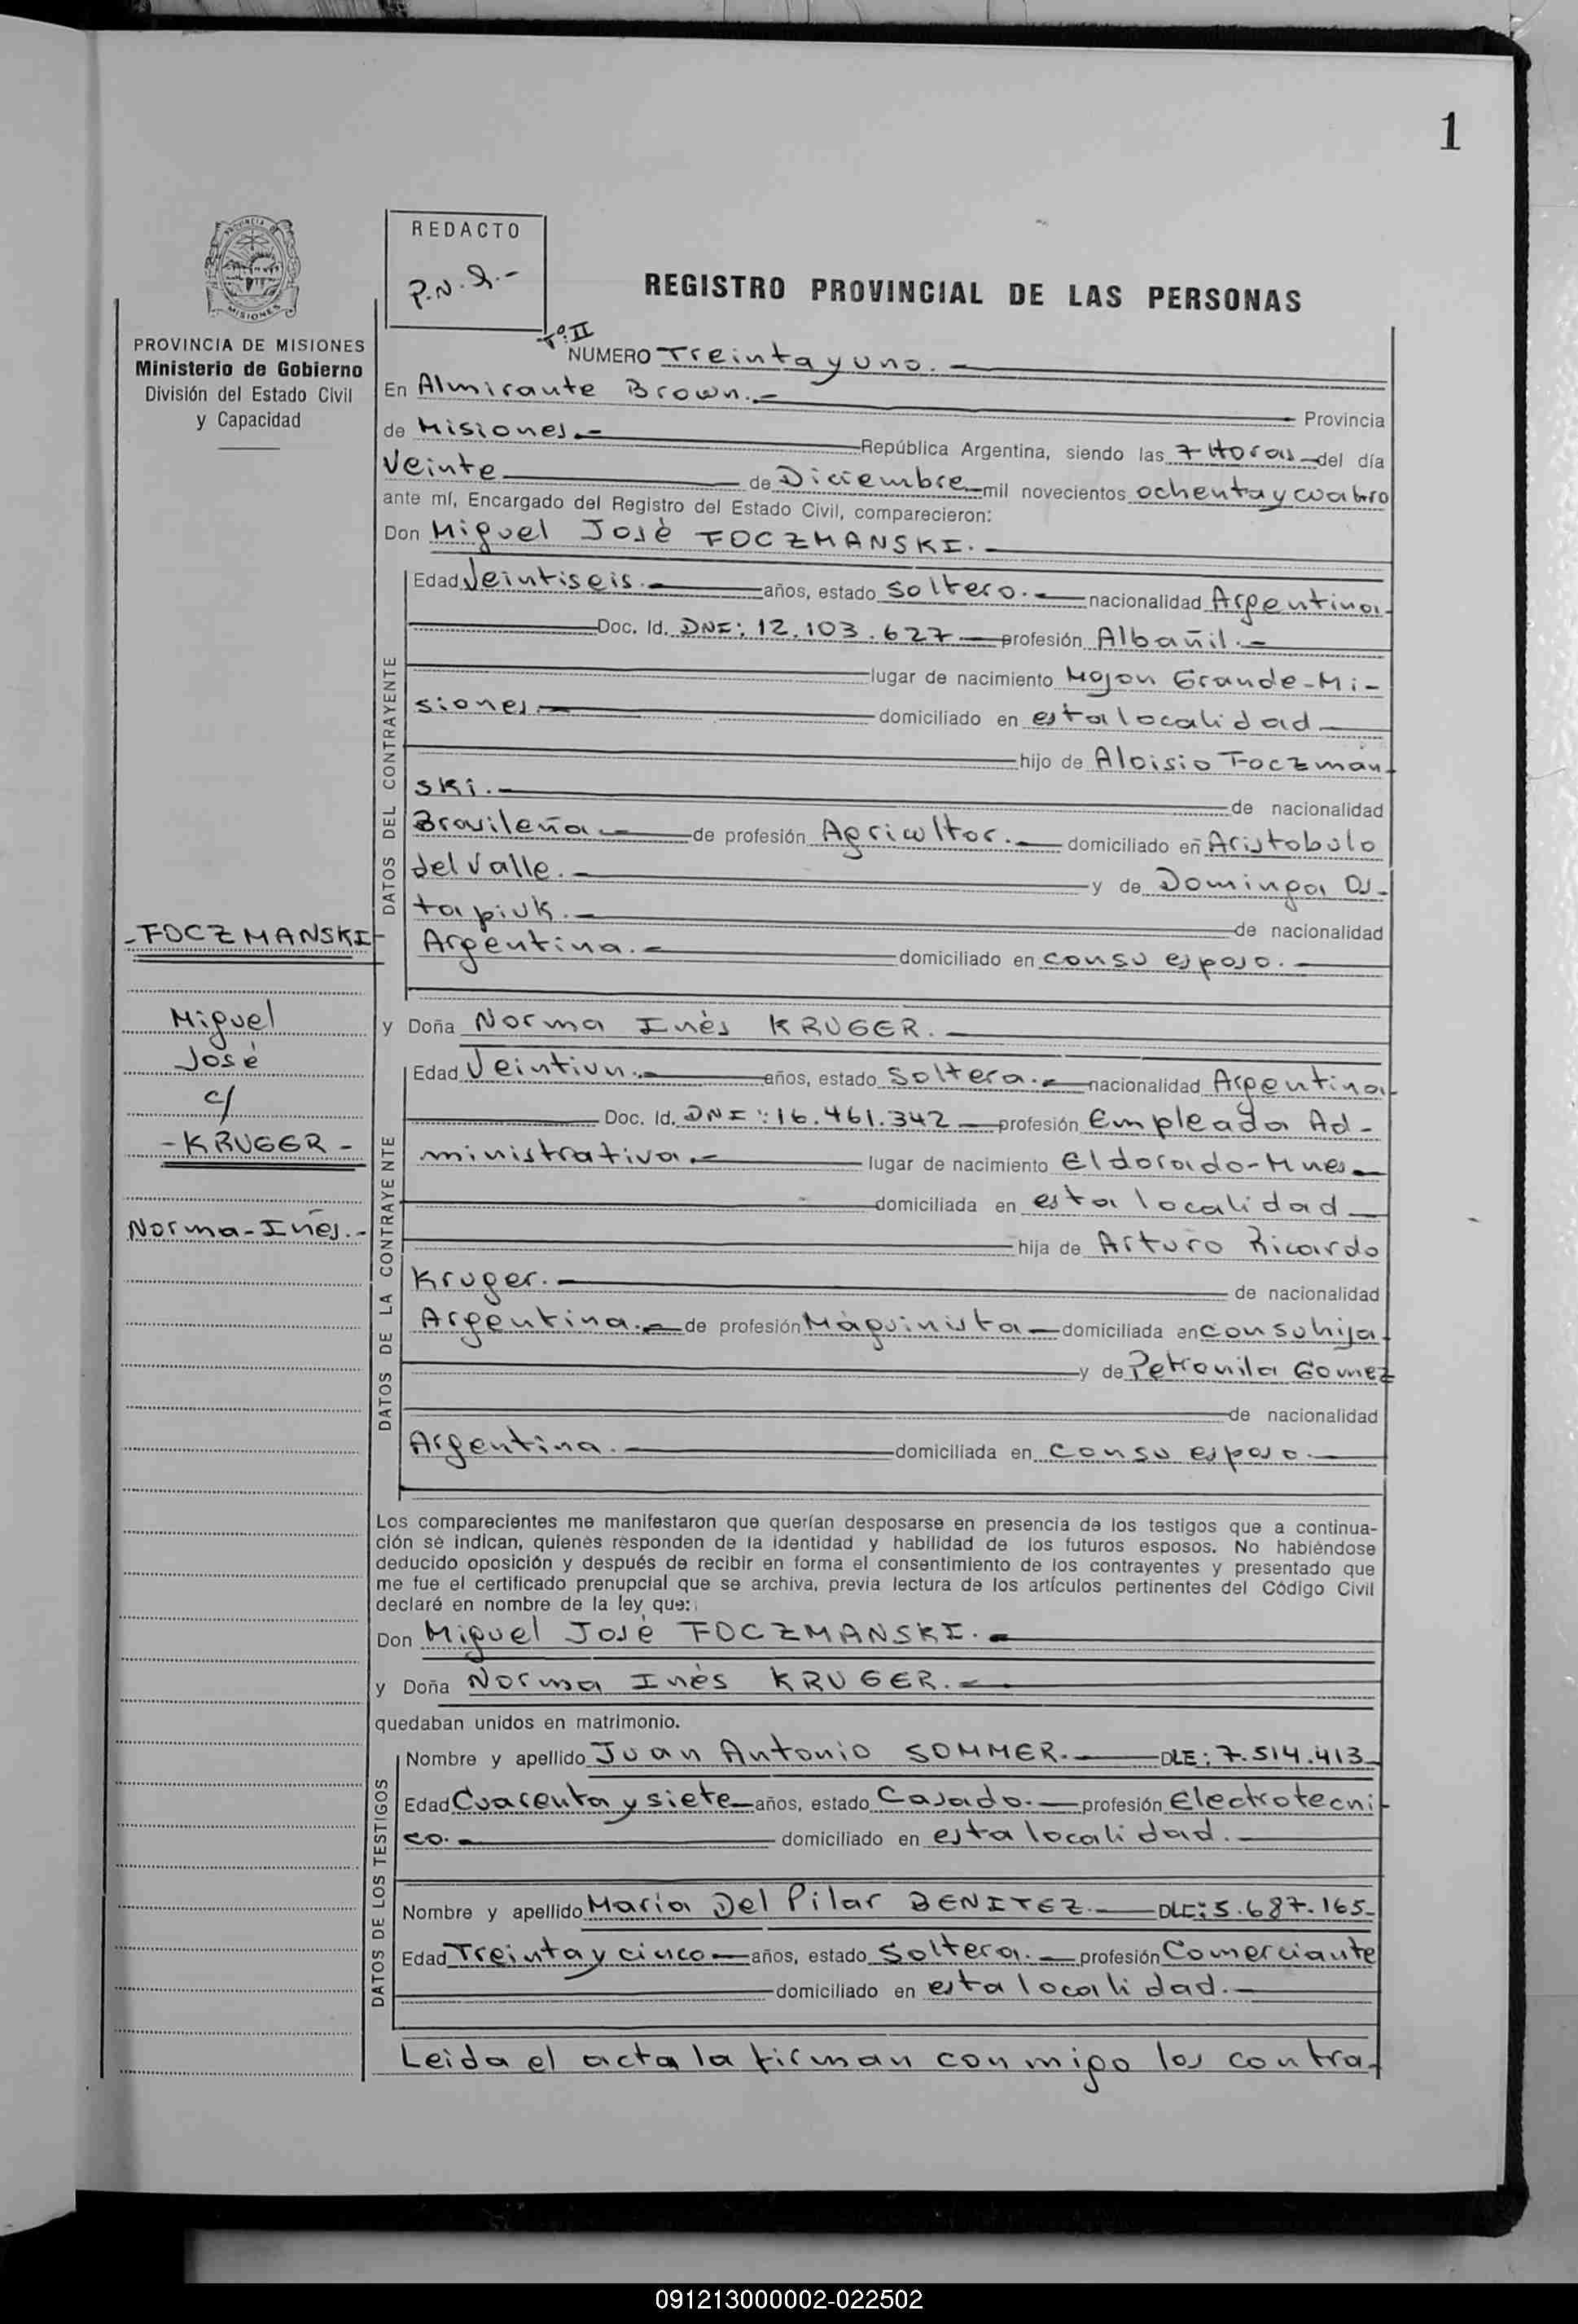 1
PROVINCIA DE
MISIONES
PROVINCIA DE MISIONES
Ministerio de Gobierno
División del Estado Civil
y Capacidad
REDACTO
REGISTRO PROVINCIAL DE LAS PERSONAS
Tº: II
NUMERO Treinta y uno.-
En Almirante Brown.- Provincia
de Misiones.- República Argentina, siendo las 7 Horas del día
Veinte de Diciembre mil novecientos ochenta y cuatro
ante mí, Encargado del Registro del Estado Civil, comparecieron:
Don Miguel José FOCZMANSKI.-
DATOS DEL CONTRAYENTE
Edad Veintiseis.- años, estado Soltero.- nacionalidad Argentina
Doc. Id. DNI: 12.103.627 profesión Albañil.-
lugar de nacimiento Mojon Grande-Mi-
siones.- domiciliado en esta localidad
hijo de Aloisio Foczman-
ski.- de nacionalidad
Brasileña de profesión Agricultor.- domiciliado en Aristobulo
del Valle.- y de Dominga Os-
tapiuk.- de nacionalidad
Argentina.- domiciliado en con su esposo.-
-FOCZMANSKI-
Miguel
José
c/
-KRUGER-
Norma-Inés.-
y Doña Norma Inés KRUGER.-
DATOS DE LA CONTRAYENTE
Edad Veintiun.- años, estado Soltera.- nacionalidad Argentina
Doc. Id. DNI: 16.461.342 profesión Empleada Ad-
ministrativa.- lugar de nacimiento Eldorado-Mnes
domiciliada en esta localidad
hija de Arturo Ricardo
Kruger.- de nacionalidad
Argentina.- de profesión Maquinista domiciliada en con su hija
y de Petronila Gomez
de nacionalidad
Argentina.- domiciliada en con su esposo.-
Los comparecientes me manifestaron que querían desposarse en presencia de los testigos que a continua-
ción se indican, quienes responden de la identidad y habilidad de los futuros esposos. No habiéndose
deducido oposición y después de recibir en forma el consentimiento de los contrayentes y presentado que
me fue el certificado prenupcial que se archiva, previa lectura de los artículos pertinentes del Código Civil
declaré en nombre de la ley que:
Don Miguel José FOCZMANSKI.-
y Doña Norma Inés KRUGER.-
quedaban unidos en matrimonio.
DATOS DE LOS TESTIGOS
Nombre y apellido Juan Antonio SOMMER.- DLE: 7.514.413
Edad Cuarenta y siete años, estado Casado.- profesión Electrotecni-
co.- domiciliado en esta localidad.-
Nombre y apellido Maria Del Pilar BENITEZ.- DLC: 5.687.165-
Edad Treinta y cinco años, estado Soltera.- profesión Comerciante
domiciliado en esta localidad.-
Leida el acta la firman conmigo los contra-
091213000002-022502